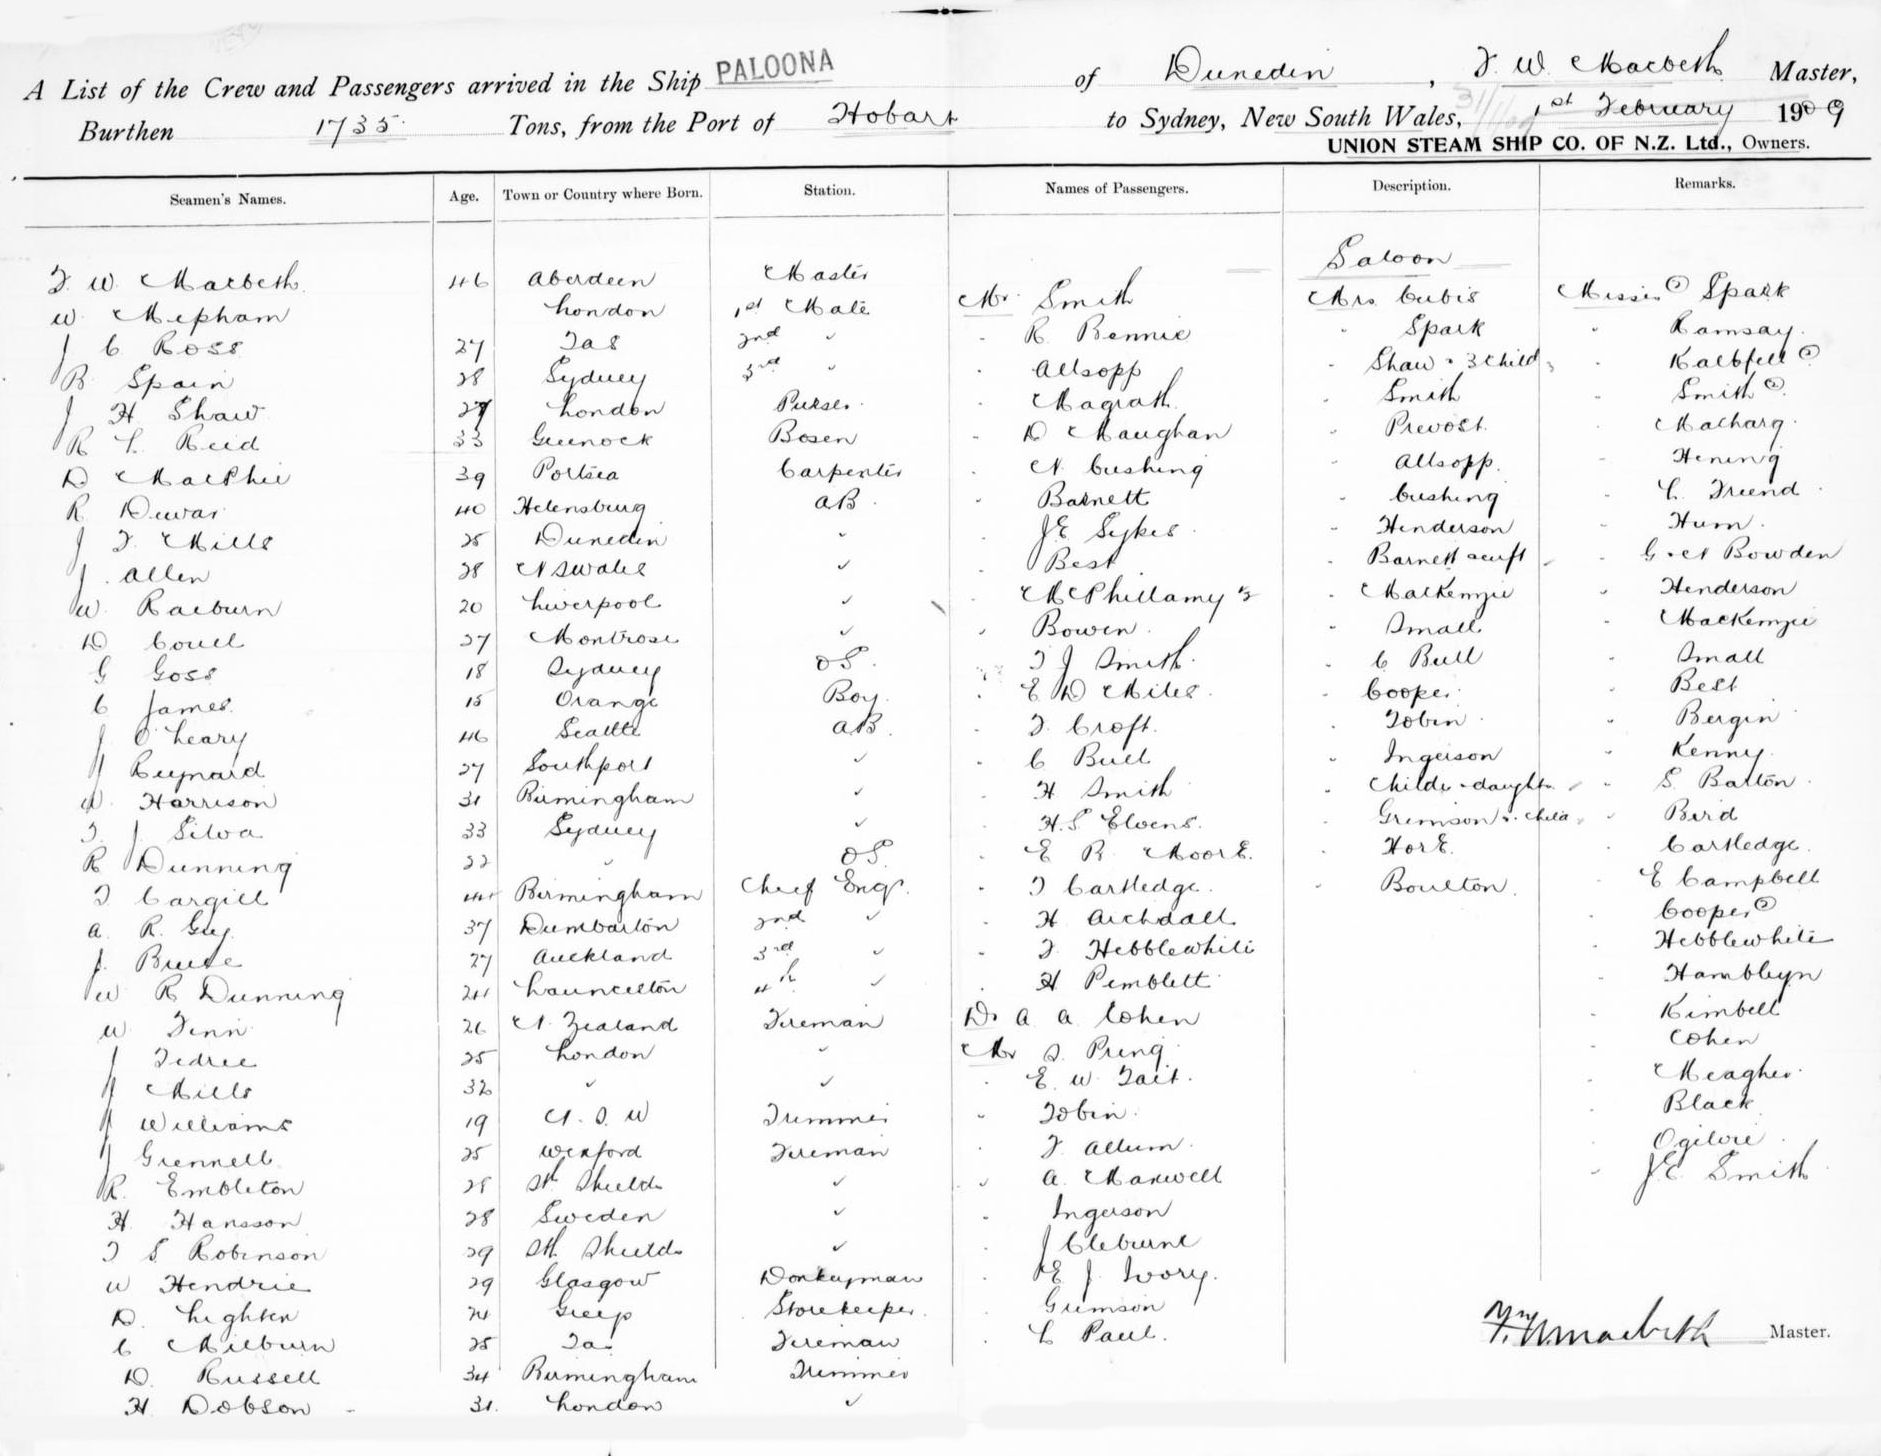 A List of the Crew and Passengers arrived in the Ship PALOONA of Dunedin, F. W. Macbeth Master,
Burthen 1735 Tons, from the Port of Hobart to Sydney, New South Wales, 1st February 1909
UNION STEAM SHIP CO. OF N.Z. Ltd., Owners.
Seamen's Names. Age. Town or Country where Born. Station. Names of Passengers. Description. Remarks.
Saloon
F. W. Macbeth 46 Aberdeen Master Mr Smith Mrs Cubis Misses Spark
W. Mepham London 1st Mate " R. Rennie " Spark " Ramsay
J C Ross 27 Tas 2nd " " Allsopp " Shaw & 3 Child " Kalbfell
R Spain 28 Sydney 3rd " " Magrath " Smith " Smith
J H Shaw 27 London Purser " D Maughan " Prevost " Macharg
R L Reid 33 Greenock Bosen " N Cushing " Allsopp " Hening
D MacPhie 39 Portsea Carpenter " Barnett " Cushing " L. Friend
R Dewar 40 Helensburg AB " J E Sykes " Henderson " Hum
J F. Mills 25 Dunedin " " Best " Barnett & inft " G & N Bowden
J. Allen 28 N S Wales " " McPhillamy " MacKenzie " Henderson
W. Raeburn 20 Liverpool " " Bowen " Small " MacKenzie
D Coull 27 Montrose " " F J Smith " C Bull " Small
G Goss 18 Sydney OS " E D Miles " Cooper " Best
C James 15 Orange Boy " F. Croft " Tobin " Bergin
J O'Leary 46 Seattle AB " C Bull " Ingerson " Kenny
J Reynard 27 Southport " " H Smith " Childs & daught " S. Barton
W. Harrison 31 Birmingham " " H. S Elvens " Grimson & child " Bird
F. J. Silva 33 Sydney " " E R Moore " Hore " Cartledge
R Dunning 22 " OS " F Cartledge " Boulton " E Campbell
F Cargill 44 Birmingham Chief Engr " H Archdall " Cooper
A. R. Guy 37 Dumbarton 2nd " " F. Hebblewhite " Hebblewhite
J. Bruce 27 Auckland 3rd " " H Pemblett " Hambleyn
W R Dunning 24 Launceston 4th " Dr A. A. Cohen " Kimbell
W Finn 26 N. Zealand Fireman Mr S. Pring " Cohen
J Tedree 25 London " " E. W. Tait " Meagher
J Mills 32 " " " Tobin " Black
J Williams 19 N. S. W Trimmer " F. Allum " Ogilvie
J Grennell 25 Wexford Fireman " A. Maxwell " J. E. Smith
R. Embleton 28 Sth Shields " " Ingerson
H. Hansson 28 Sweden " " J Cleburne
F S Robinson 29 Sth Shields " " E J. Ivory
W Hendrie 29 Glasgow Donkeyman " Grimson
D. Lighten Storekeeper " L Paul
C Milburn 25 Tas Fireman
D. Russell 34 Birmingham Trimmer
H Dobson 31 London "
F. W. Macbeth Master.